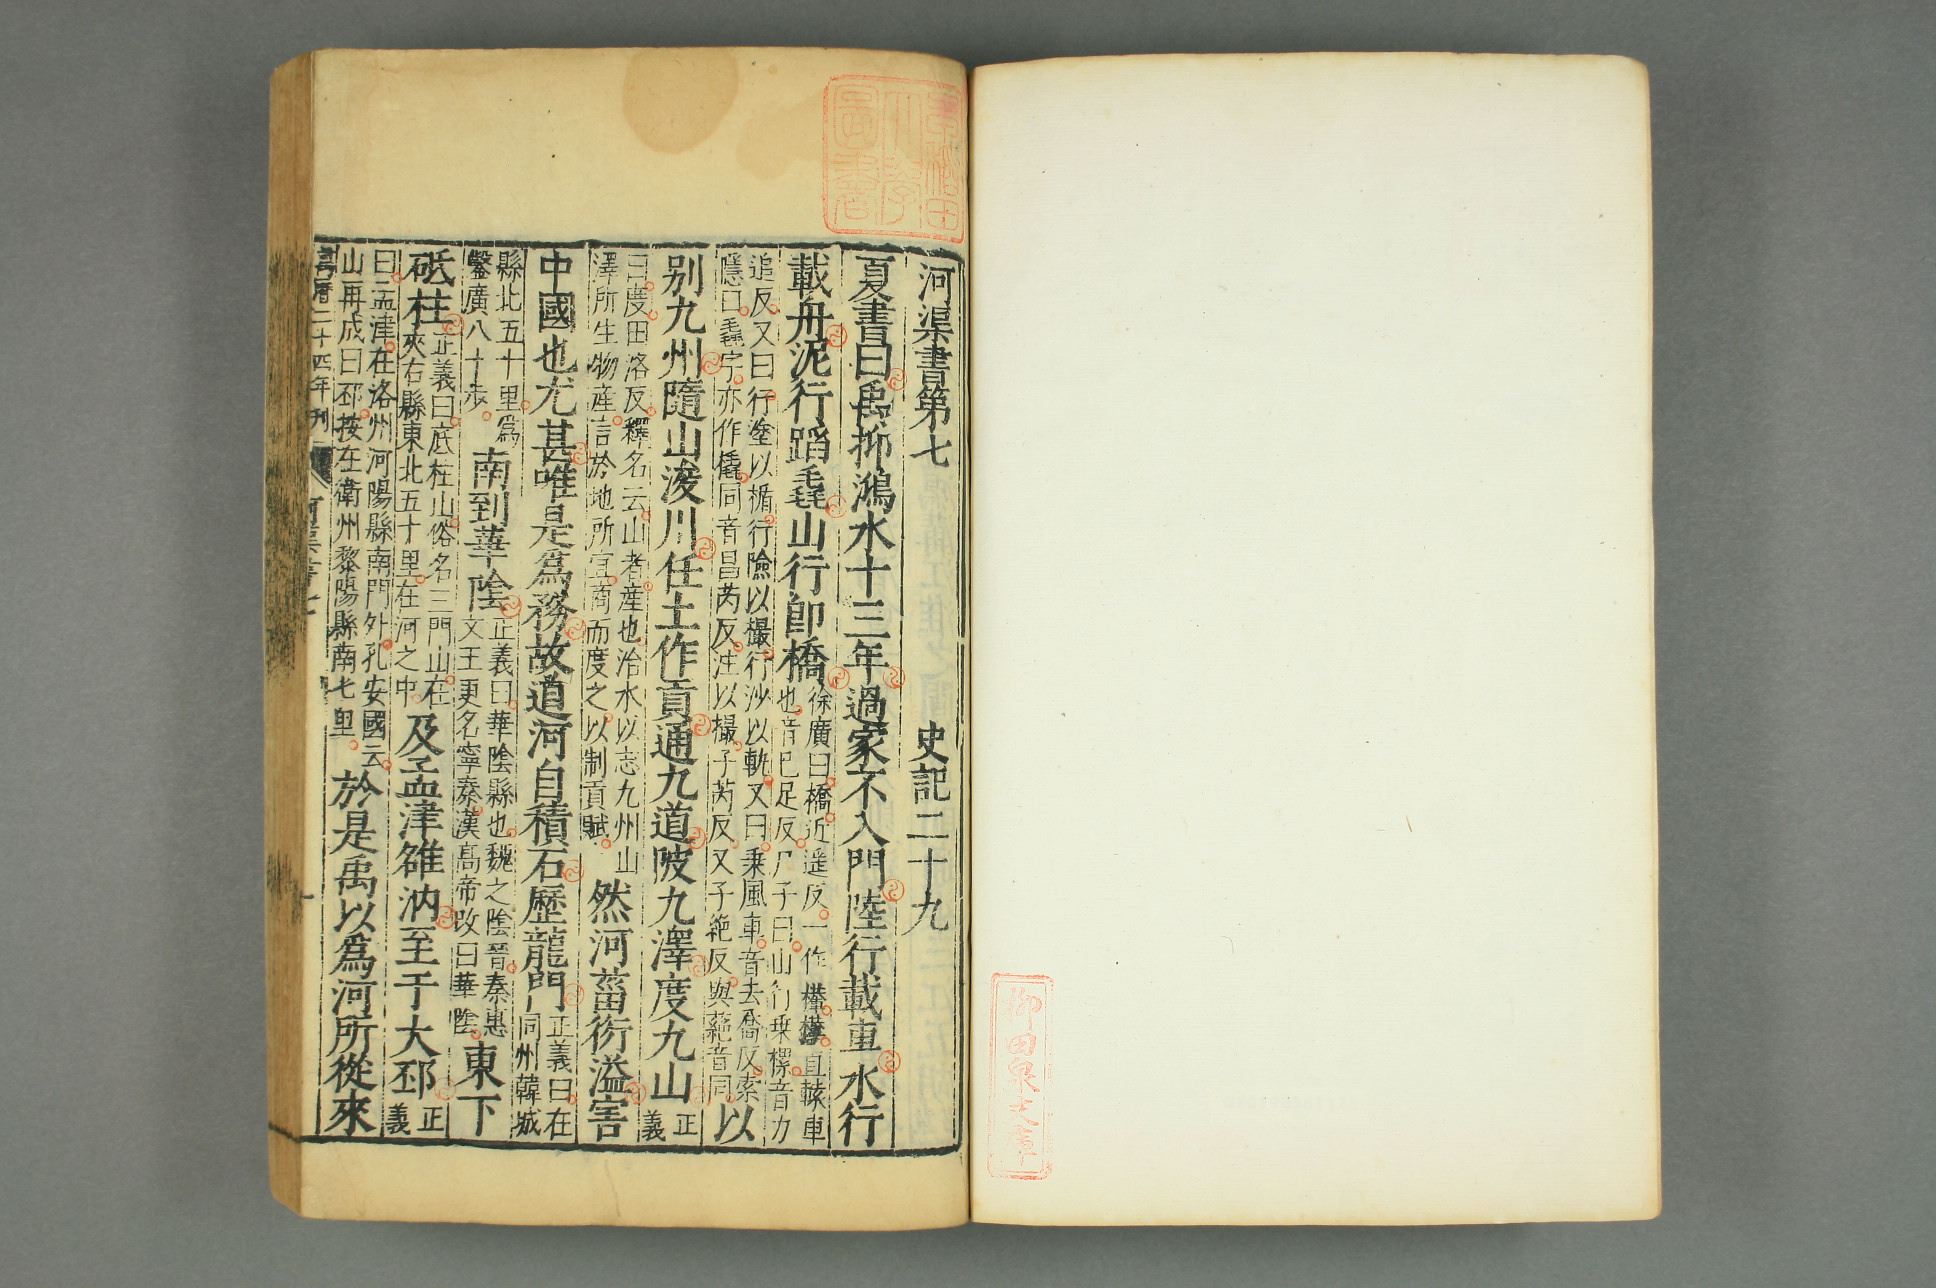 河渠書第七 史記二十九
夏書曰禹抑鴻水十三年過家不入門陸行載車水行
載舟泥行蹈毳山行卽橋徐廣曰橋近遥反一作檋檋直轅車也音已足反尸子曰山行乗樏音力
追反又曰行塗以楯行險以樶行沙以軌又曰乗風車音去喬反索隱曰毳字亦作橇同音昌芮反注以樶子芮反又子絶反與蕝音同以
别九州隨山浚川任土作貢通九道陂九澤度九山正義
曰度田洛反釋名云山者産也治水以志九州山澤所生物產言於地所宜商而度之以制貢賦然河菑衍溢害
中國也尤甚唯是爲務故道河自積石歷龍門正義曰在同州韓城
縣北五十里爲鑿廣八十步南到華陰正義曰華陰縣也魏之陰晉秦惠文王更名寧秦漢高帝改曰華陰東下
砥柱正義曰底柱山俗名三門山在硤石縣東北五十里在河之中及孟津雒汭至于大邳正義
曰孟津在洛州河陽縣南門外孔安國云山再成曰邳按在衛州黎陽縣南七里於是禹以爲河所從來
萬曆二十四年刊 河渠書七 一
早稲田大學圖書
柳田泉文庫